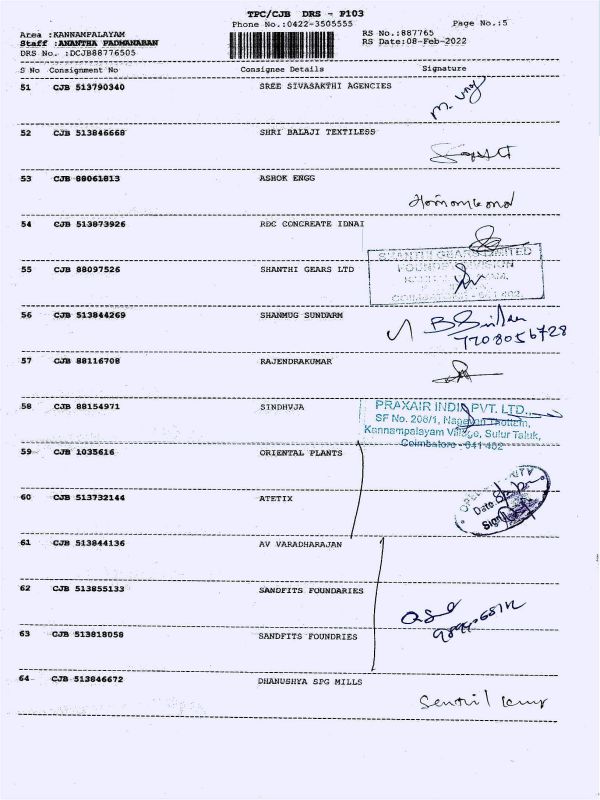 TPC/CJB DRS - P103
Phone No.:0422-3505555
Page No.:5
Area :KANNAMPALAYAM
RS No.:887765
Staff :ANANTHA PADMANABAN
RS Date:08-Feb-2022
DRS No. :DCJB88776505
S No Consignment No Consignee Details Signature
51 CJB 513790340 SREE SIVASAKTHI AGENCIES
52 CJB 513846668 SHRI BALAJI TEXTILESS
53 CJB 88061813 ASHOK ENGG
54 CJB 513873926 RDC CONCREATE IDNAI
SHANTHI GEARS LIMITED
FOUNDRY DIVISION
55 CJB 88097526 SHANTHI GEARS LTD
56 CJB 513844269 SHANMUG SUNDARM
7708056728
57 CJB 88116708 RAJENDRAKUMAR
58 CJB 88154971 SINDHVJA
PRAXAIR INDIA PVT. LTD.,
SF No. 208/1, Nagevan Thottam,
Kannampalayam Village, Sulur Taluk,
Coimbatore - 641 402
59 CJB 1035616 ORIENTAL PLANTS
60 CJB 513732144 ATETIX
Date
Sign
61 CJB 513844136 AV VARADHARAJAN
62 CJB 513855133 SANDFITS FOUNDARIES
63 CJB 513818058 SANDFITS FOUNDRIES
64 CJB 513846672 DHANUSHYA SPG MILLS